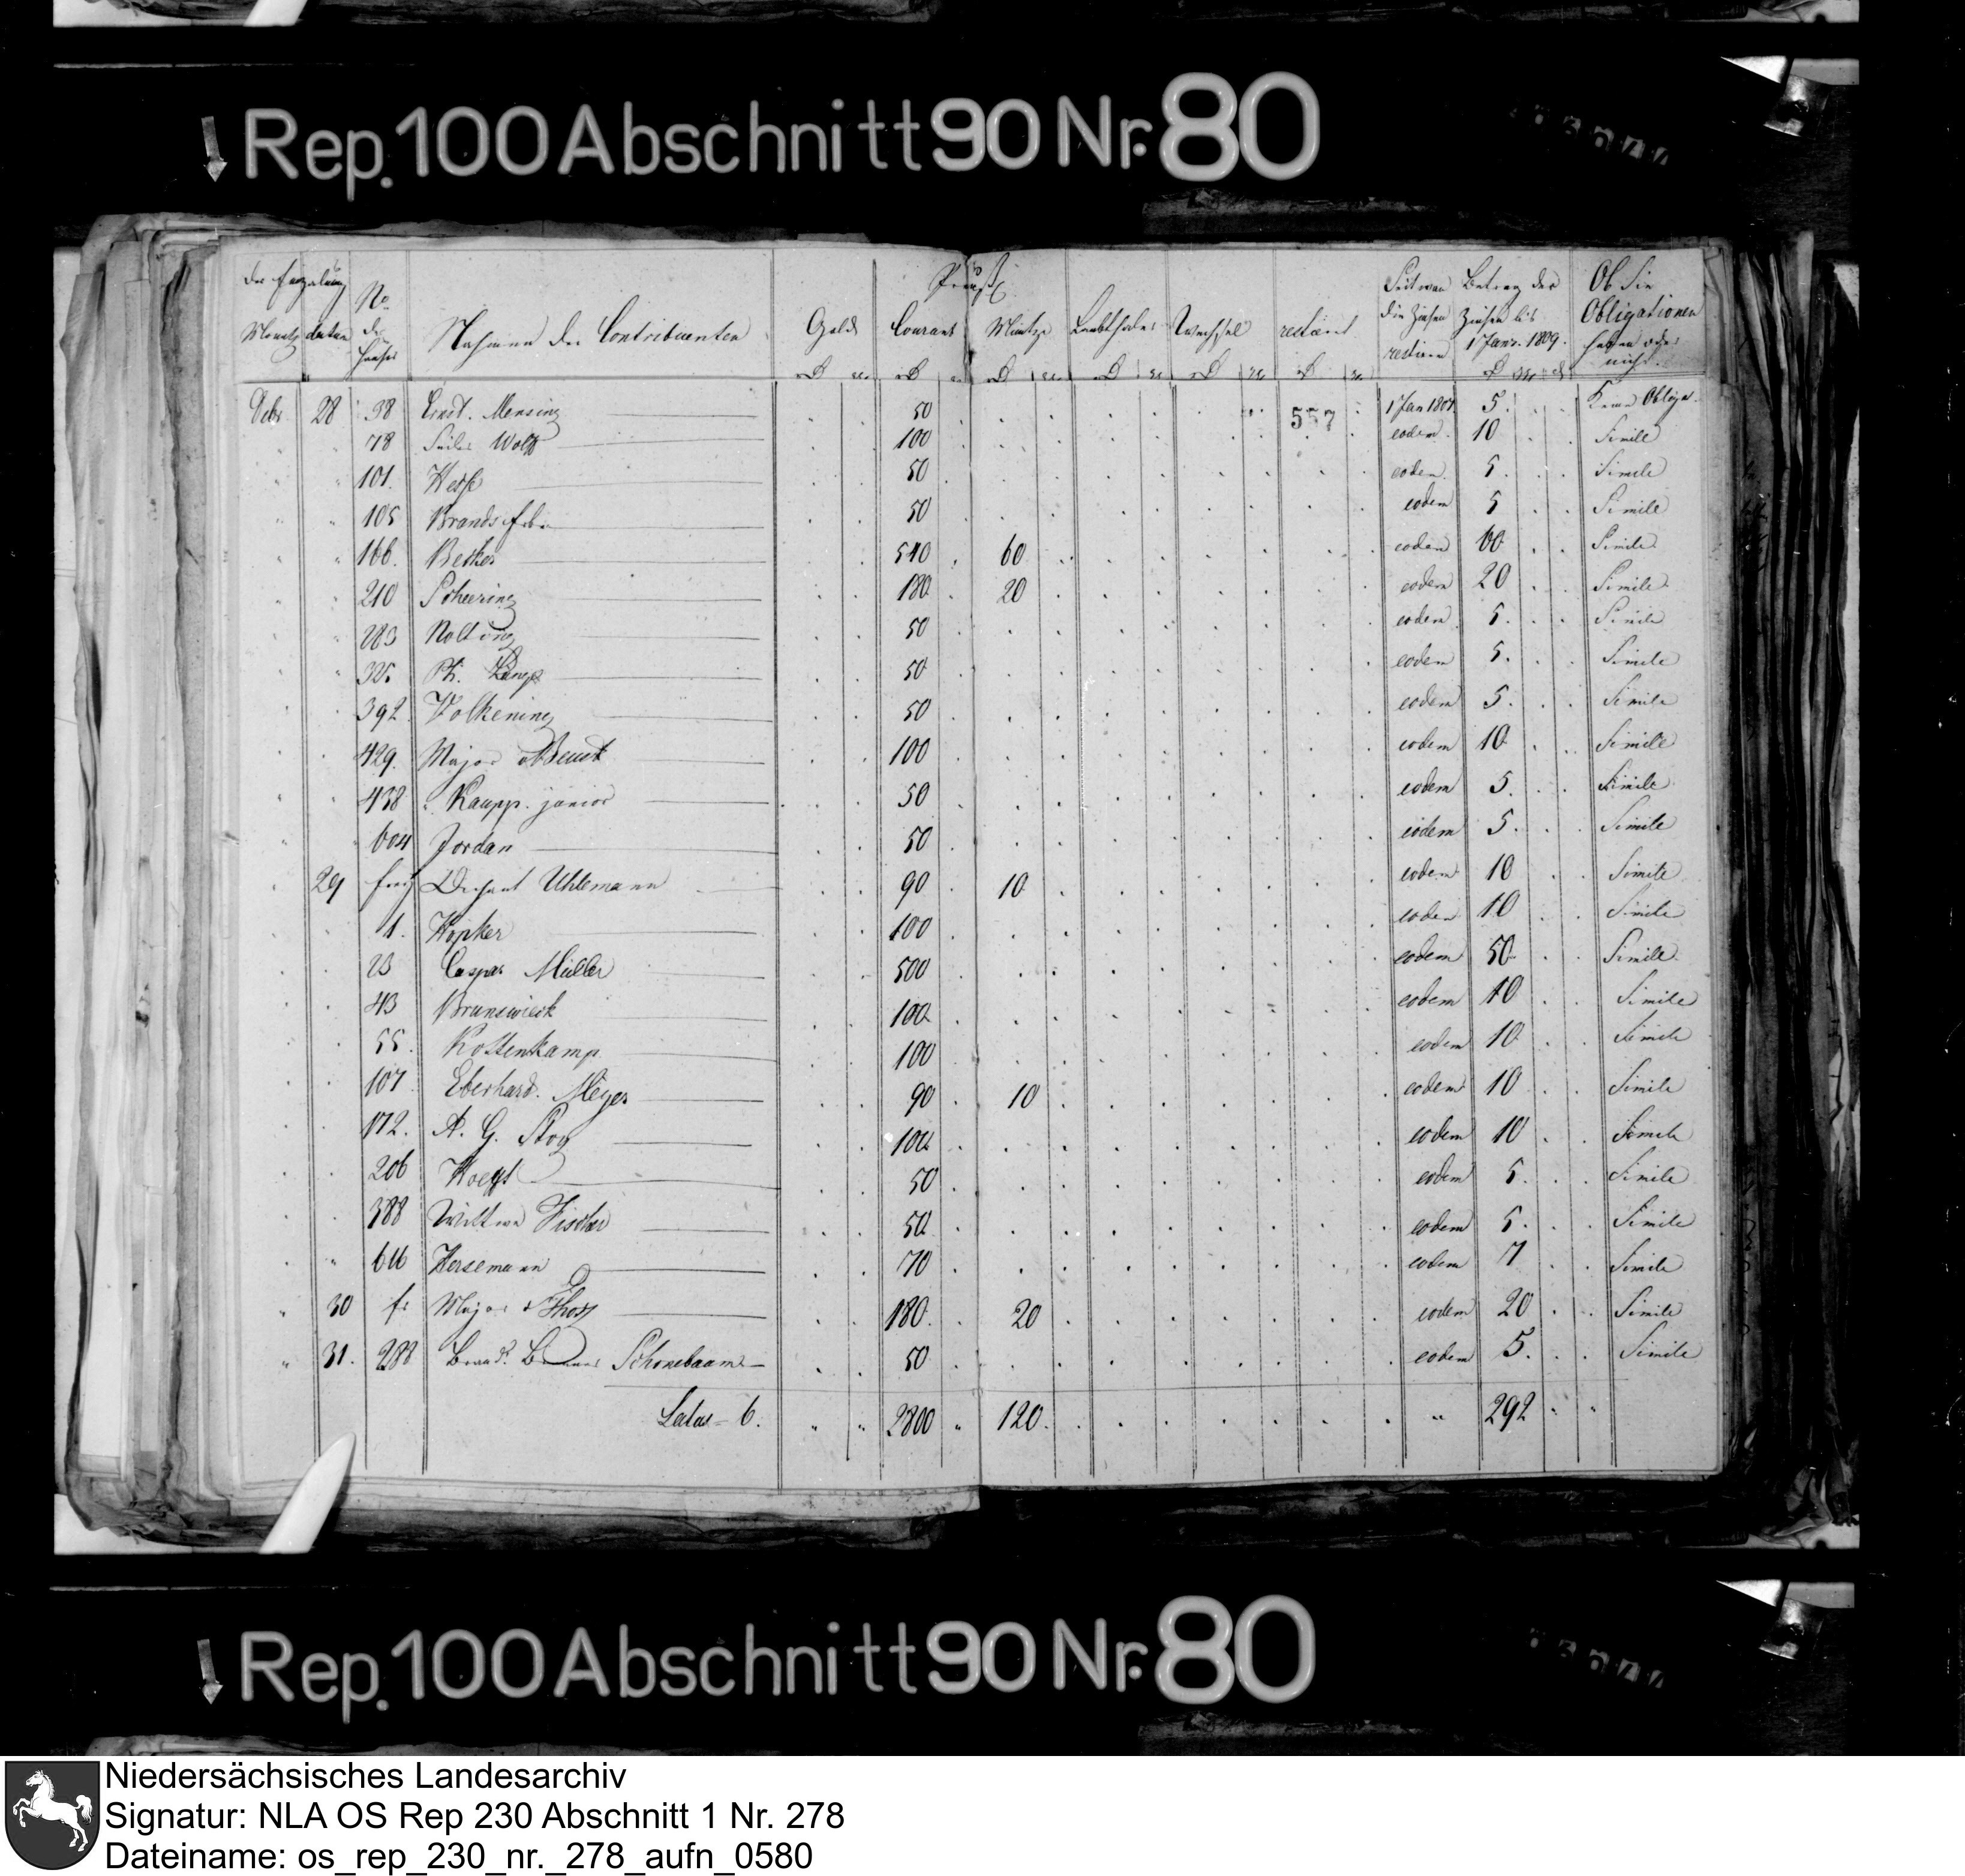 Rep. 100 Abschnitt 90 Nr. 80
der Einzalung No. Preuß.
Monat datum der Hauser Nahmen der Contribuenten Gold Courant Müntze Laubthaler Wechsel restant Seit wan die Zinsen restiren Betrag der Zinsen bis 1 Janr. 1809. Ob Sie Obligationen haben oder nicht.
557
Decbr 28 38 Ernst. Mensing 50 1 Jan 1807 5. Keine Obligat.
78 Wolff 100 eodem. 10 Simile
101. Hesse 50 eodem 5. Simile
105 Brands 50 eodem 5 Simile
166. Becker 540 60 eodem 60 Simile
210 Scheering 180 20 eodem 20 Simile
283 Nolting 50 eodem 5. Simile
325 Ph. 50 eodem 5. Simile
392 Volkening 50 eodem 5. Simile
429. Major 100 eodem 10 Simile
438 Kaupp. junior 50 eodem 5. Simile
604 Jordan 50 eodem 5. Simile
29 frey Dechant Uhlemann 90 10 eodem 10 Simile
1. Höpker 100 eodem 10 Simile
23 Caspar Müller 500 eodem 50 Simile
43 Brunswieck 100 eodem 10 Simile
55. Kottenkamp 100 eodem 10 Simile
107 Eberhard. Meyer 90 10 eodem 10 Simile
172. A. G. Stoy 100 eodem 10 Simile
206 50 eodem 5. Simile
388 Wittwe Fischer 50 eodem 5. Simile
616 Horsemann 70 eodem 7 Simile
30 fr Major v 180. 20 eodem 20 Simile
31. 288 Schonebaum 50 eodem 5. Simile
Latus 6. 2800 120. 292
Rep. 100 Abschnitt 90 Nr. 80
Niedersächsisches Landesarchiv
Signatur: NLA OS Rep 230 Abschnitt 1 Nr. 278
Dateiname: os_rep_230_nr._278_aufn_0580